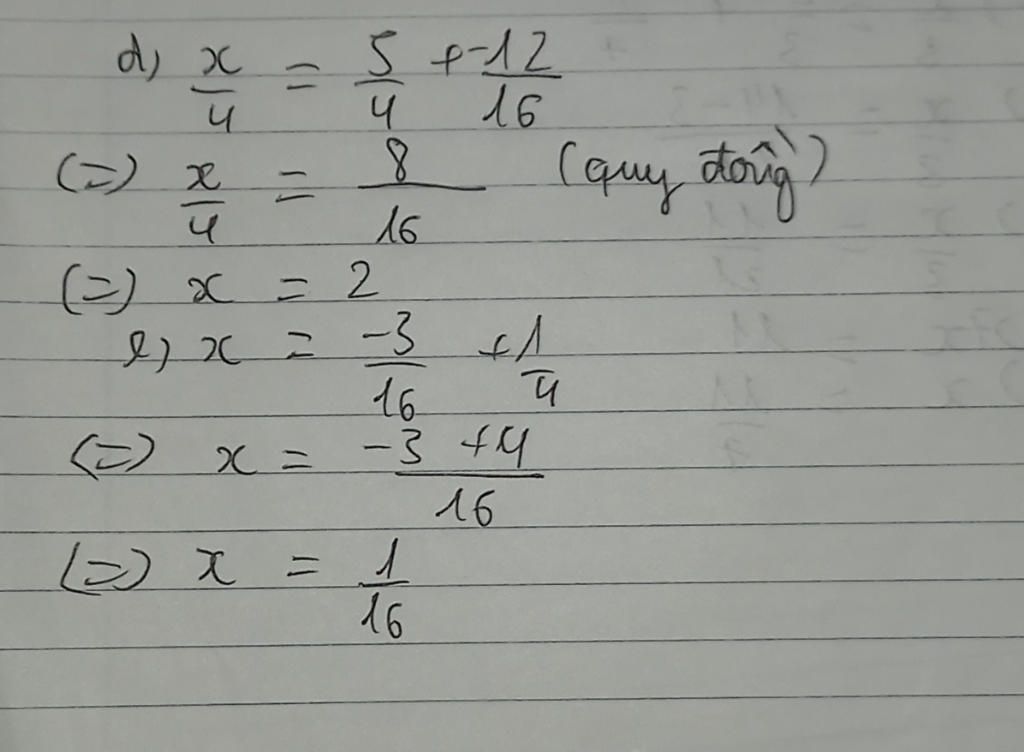 d) x/4 = 5/4 + -12/16
(=) x/4 = 8/16 (quy đồng)
(=) x = 2
e) x = -3/16 + 1/4
(=) x = -3 + 4/16
(=) x = 1/16